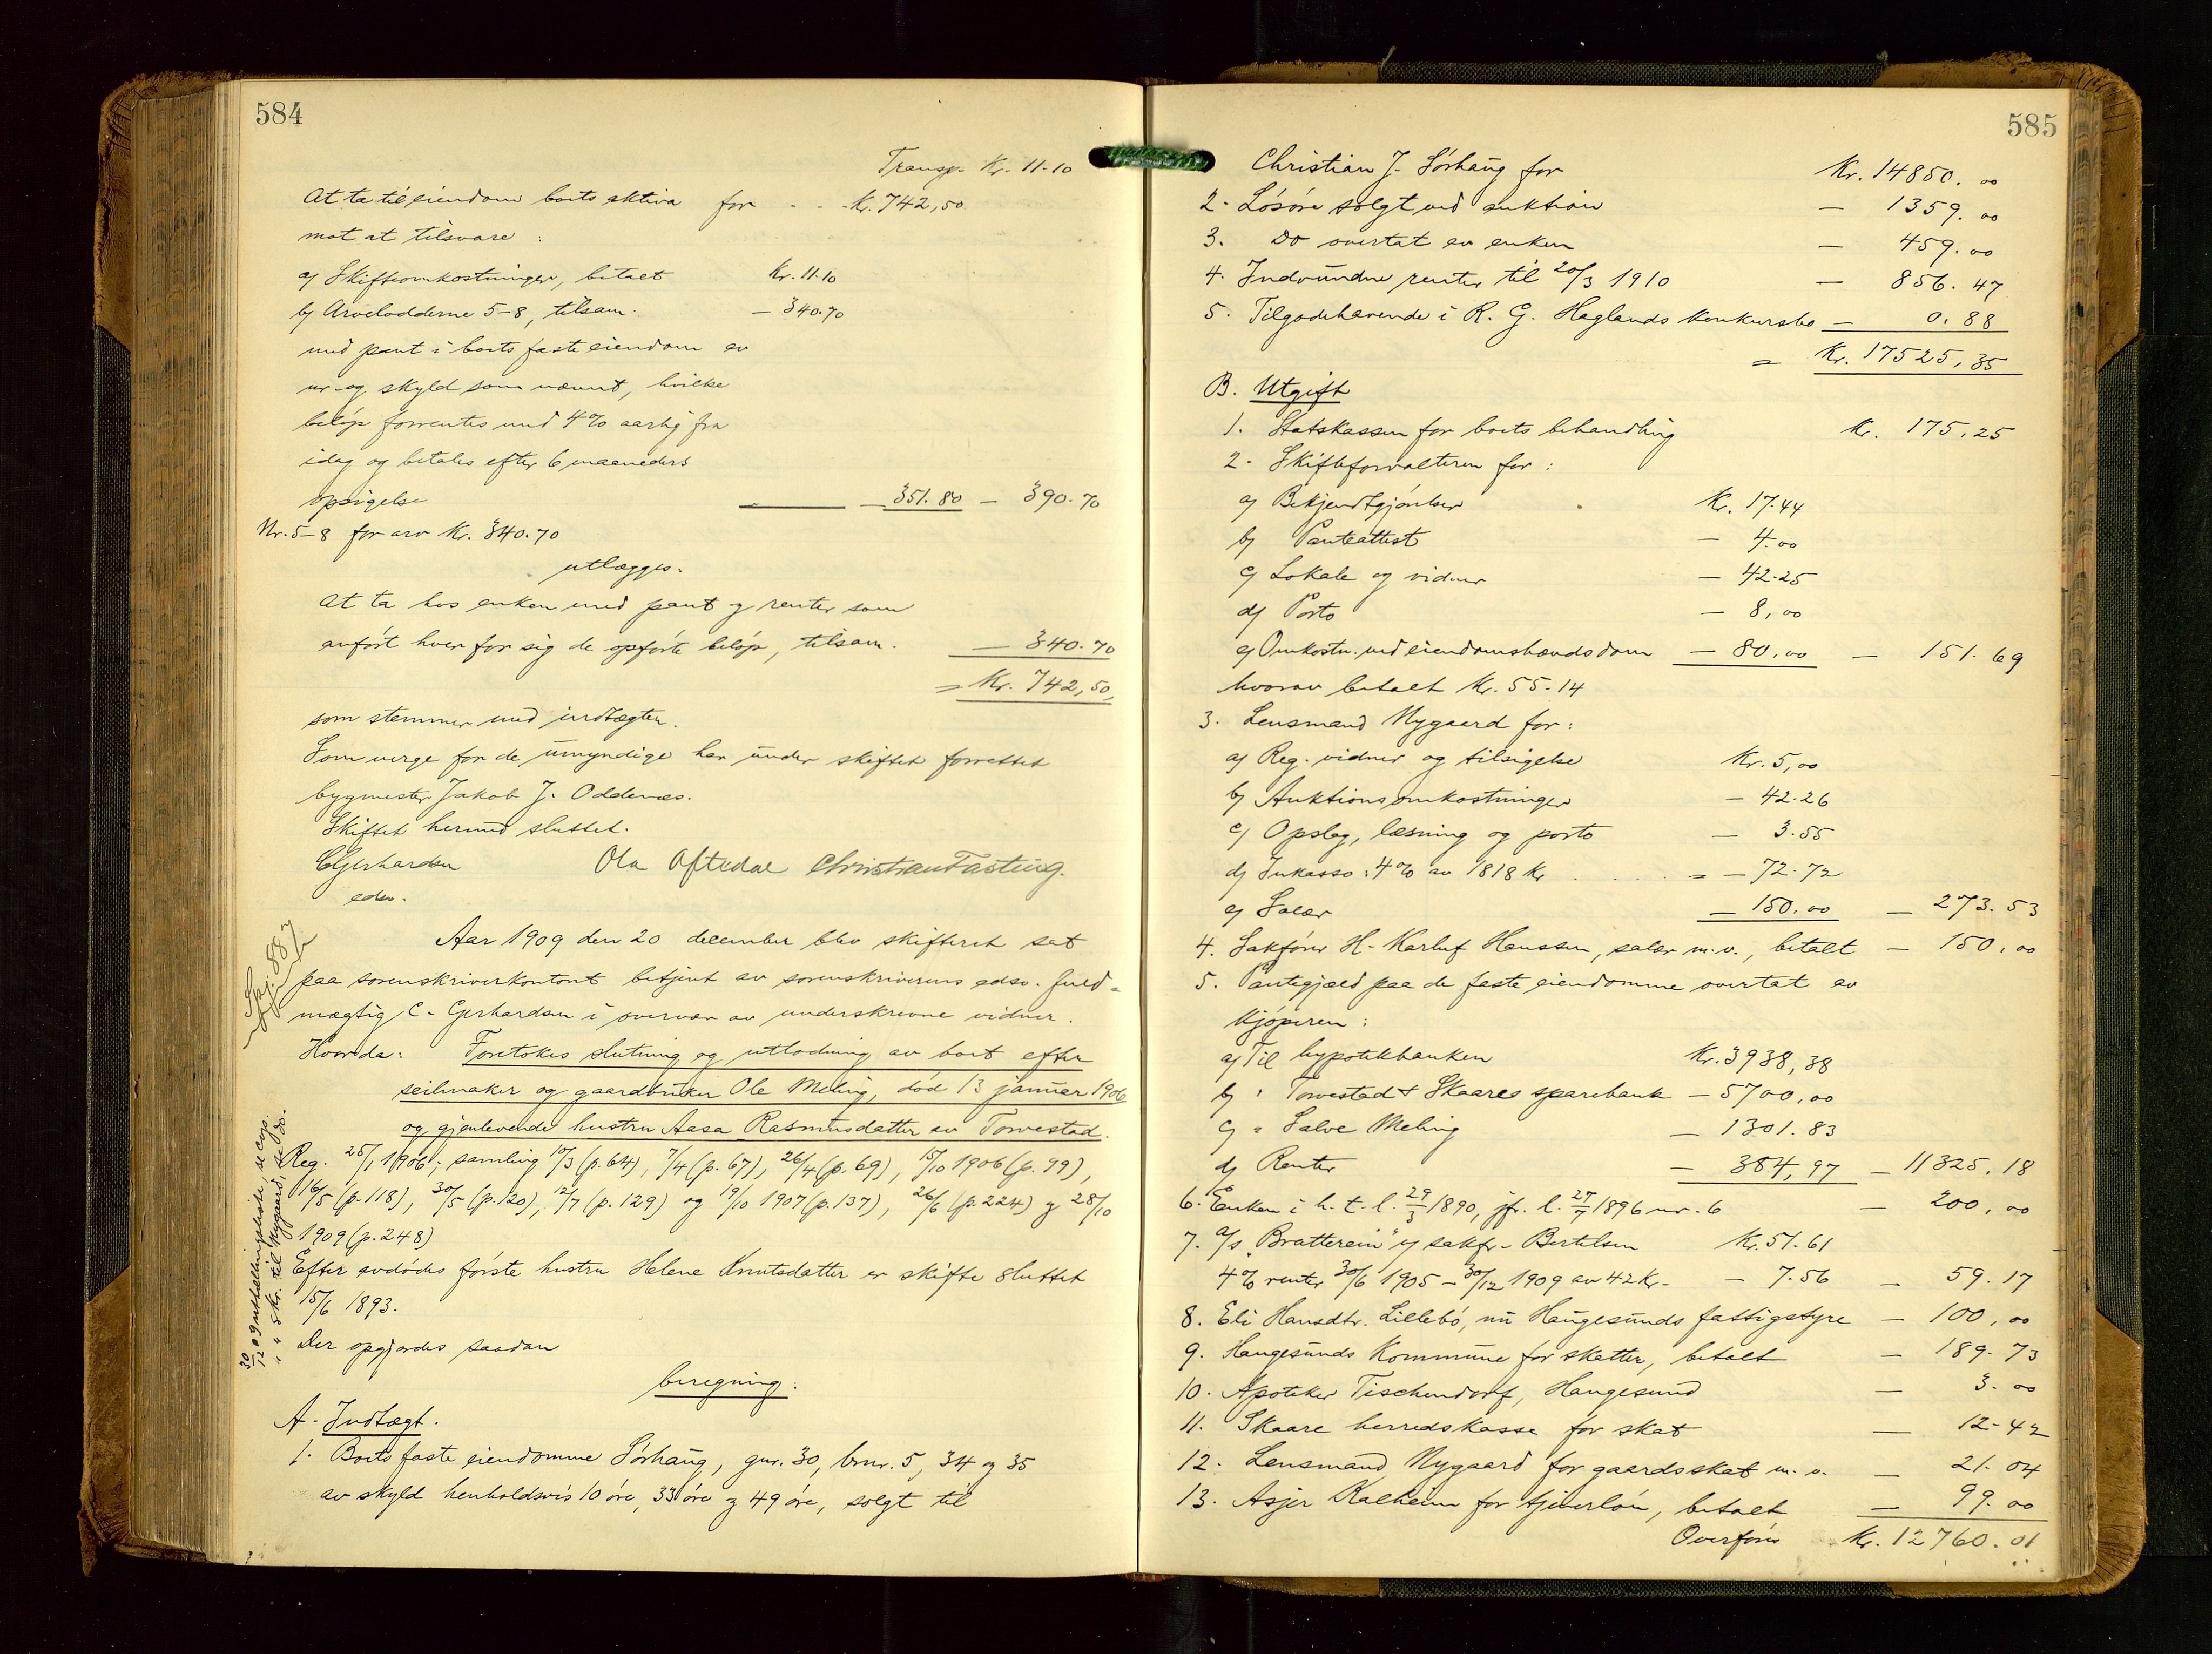 584
Transp. Kr. 11.10
At ta til eiendom boets aktiva for - - - Kr. 742,50
mot at tilsvare :
a) Skifteomkostninger, betalt Kr. 11.10
b) Arvelodderne 5-8, tilsam. — 340.70
med pant i boets faste eiendom av
nr. og skyld som nævnt, hvilke
beløp forrentes med 4% aarlig fra
idag og betales efter 6 maaneders
opsigelse — 351.80 — 390.70
Nr. 5-8 for arv Kr. 340.70
utlægges.
At ta hos enken med pant og renter som
anført hver for sig de opførte beløp, tilsam. — 340.70
= Kr. 742,50,
som stemmer med indtægten.
Som verge for de umyndige har under skiftet forrettet
bygmester Jakob J. Oddenes.
Skiftet hermed sluttet.
CGerhardsen Ola Aftedal Christian Fasting.
edsv.
Aar 1909 den 20 december blev skifteret sat
paa sorenskriverkontoret betjent av sorenskriverens edsv. fuld-
mægtig C. Gerhardsen i overvær av underskrevne vidner.
Hvorda: Foretokes slutning og utlodning av boet efter
seilmaker og gaardbruker Ole Meling, død 13 januar 1906
og gjenlevende hustru Aasa Rasmusdatter av Torvestad.
Reg. 25/1 1906; samling 10/3 (p. 64), 7/4 (p. 67), 26/4 (p. 69), 15/10 1906 (p. 99),
16/5 (p. 118), 30/5 (p. 120), 12/7 (p. 129) og 19/10 1907 (p. 137), 26/6 (p. 224) og 28/10
1909 (p. 248)
Efter avdødes første hustru Helene Knutsdatter er skifte sluttet
15/6 1893.
Der opgjordes saadan
beregning:
A. Indtægt.
1. Boets faste eiendomme Sørhaug, gnr. 30, bnr. 5, 34 og 35
av skyld henholdsvis 10 øre, 33 øre og 49 øre, solgt til
30/12 09 utstellingsliste, se cop.
" " Skr. til Nygaard, se do.
585
Christian J. Sørhaug for Kr. 14850.00
2. Løsøre solgt ved auktion — 1359.00
3. Do overtat av enken — 459.00
4. Indvundne renter til 20/3 1910 — 856.47
5. Tilgodehavende i R. G. Haglands konkursbo — 0.88
= Kr. 17525,35
B. Utgift
1. Statskassen for boets behandling Kr. 175,25
2. Skifteforvalteren for :
a) Bekjendtgjørelser Kr. 17.44
b) Panteattest — 4.00
c) Lokale og vidner — 42.25
d) Porto — 8,00
e) Omkostn. ved eiendomshævdsdom — 80,00 — 151.69
hvorav betalt Kr. 55.14
3. Lensmand Nygaard for :
a) Reg. vidner og tilsigelse Kr. 5,00
b) Auktionsomkostninger — 42.26
c) Opslag, læsning og porto — 3.55
d) Inkasso: 4% av 1818 Kr . . . . . = — 72.72
e) Salær — 150.00 — 273.53
4. Sakfører H. Karluf Hanssen, salær m.v., betalt — 150,00
5. Pantegjæld paa de faste eiendomme overtat av
kjøperen :
a) Til hypotekbanken Kr. 3938,38
b) " Torvestad & Skaares sparebank — 5700,00
c) " Salve Meling — 1301.83
d) Renter — 384,97 — 11325.18
6. Enken i h. t. l. 29/3 1890, jfr. l. 27/7 1896 nr. 6 — 200,00
7. A/S "Bratterein" v/ sakfr. Bertelsen Kr. 51.61
4% renter 30/6 1905 — 30/12 1909 av 42 Kr. — 7.56 — 59.17
8. Eli Hansdtr. Lillebø, nu Haugesunds fattigstyre — 100,00
9. Haugesunds Kommune for skatter, betalt — 189.73
10. Apoteker Tischendorf, Haugesund — 3.00
11. Skaare herredskasse for skat — 12.42
12. Lensmand Nygaard for gaardsskat m.v. — 21.04
13. Asjer Kalheim for tjenerløn, betalt — 99.00
Overføres Kr. 12760.01